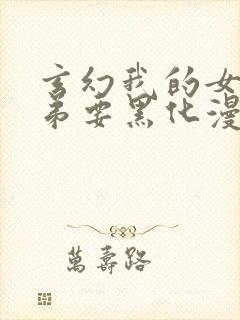 玄幻我的女
弟要黑化漫
萬壽路